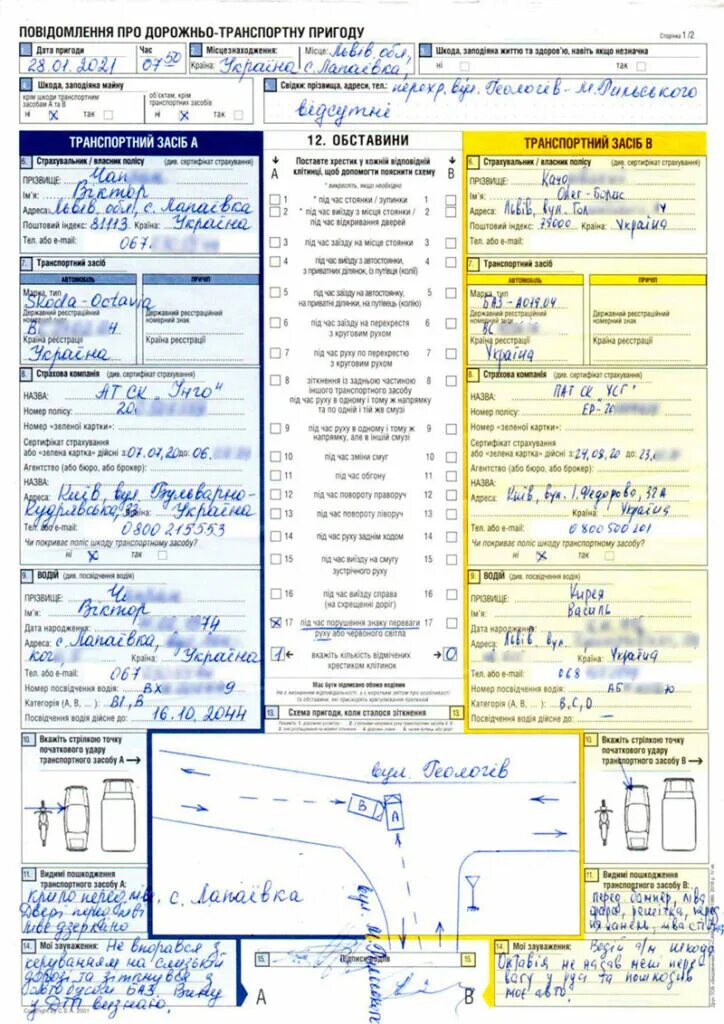 ПОВІДОМЛЕННЯ ПРО ДОРОЖНЬО-ТРАНСПОРТНУ ПРИГОДУ
Сторінка 1/2
1. Дата пригоди Час
28.01.2021 07 50
2. Місцезнаходження: Місце: Львів. обл,
Країна: Україна с. Лапаївка,
3. Шкода, заподіяна життю та здоров'ю, навіть якщо незначна
ні так
4. Шкода, заподіяна майну
крім шкоди транспортним засобам А та В
об'єктам, крім транспортних засобів
ні так ні так
5. Свідки: прізвища, адреси, тел.: перехр. вул. Геологів - М. Рильського
відсутні
ТРАНСПОРТНИЙ ЗАСІБ А
6. Страхувальник / власник полісу (див. сертифікат страхування)
ПРІЗВИЩЕ:
Ім'я: Віктор
Адреса: Львів. обл, с. Лапаївка
Поштовий індекс: 81113 Країна: Україна
Тел. або e-mail: 067
7. Транспортний засіб
АВТОМОБІЛЬ ПРИЧІП
Марка, тип
Skoda-Octavia
Державний реєстраційний номерний знак
Державний реєстраційний номерний знак
Країна реєстрації Країна реєстрації
Україна
8. Страхова компанія (див. сертифікат страхування)
НАЗВА: АТ СК "Інго"
Номер полісу: 20
Номер «зеленої картки»:
Сертифікат страхування
або «зелена картка» дійсні з 07.07.20 до 06.
Агентство (або бюро, або брокер):
НАЗВА:
Адреса: Київ, вул. Бульварно-
Кудрявська, 33 Країна: Україна
Тел. або e-mail: 0800 215553
Чи покриває поліс шкоду транспортному засобу?
ні так
9. ВОДІЙ (див. посвідчення водія)
ПРІЗВИЩЕ:
Ім'я: Віктор
Дата народження: 1974
Адреса: с. Лапаївка,
Країна: Україна
Тел. або e-mail: 067
Номер посвідчення водія: ВХ 9
Категорія (А, В, ... ): В1, В
Посвідчення водія дійсне до: 16.10.2044
12. ОБСТАВИНИ
Поставте хрестик у кожній відповідній
клітинці, щоб допомогти пояснити схему
А В
* викресліть, якщо необхідно
1 * під час стоянки / зупинки 1
2 * під час виїзду з місця стоянки / під час відкривання дверей 2
3 під час заїзду на місце стоянки 3
4 під час виїзду з автостоянки, з приватних ділянок, із путівця (колії) 4
5 під час заїзду на автостоянку, на приватні ділянки, на путівець (колію) 5
6 під час заїзду на перехрестя з круговим рухом 6
7 під час руху по перехрестю з круговим рухом 7
8 зіткнення із задньою частиною іншого транспортного засобу під час руху в одному і тому ж напрямку та по одній і тій же смузі 8
9 під час руху в одному і тому ж напрямку, але в іншій смузі 9
10 під час зміни смуг 10
11 під час обгону 11
12 під час повороту праворуч 12
13 під час повороту ліворуч 13
14 під час руху заднім ходом 14
15 під час виїзду на смугу зустрічного руху 15
16 під час виїзду справа (на схрещенні доріг) 16
17 під час порушення знаку переваги руху або червоного світла 17
1 вкажіть кількість відмічених хрестиком клітинок 0
Має бути підписано обома водіями
13. Схема пригоди, коли сталося зіткнення 13.
ТРАНСПОРТНИЙ ЗАСІБ В
6. Страхувальник / власник полісу (див. сертифікат страхування)
ПРІЗВИЩЕ:
Ім'я: Олег-Борис
Адреса: Львів, вул.
Поштовий індекс: 79000 Країна: Україна
Тел. або e-mail:
7. Транспортний засіб
АВТОМОБІЛЬ ПРИЧІП
Марка, тип
БАЗ-А079.04
Державний реєстраційний номерний знак
Державний реєстраційний номерний знак
ВС
Країна реєстрації Країна реєстрації
Україна
8. Страхова компанія (див. сертифікат страхування)
НАЗВА: ПАТ СК "УСГ"
Номер полісу: ЕР-20
Номер «зеленої картки»:
Сертифікат страхування
або «зелена картка» дійсні з 24.08.20 до 23.
Агентство (або бюро, або брокер):
НАЗВА:
Адреса: Київ, вул. І. Федорова, 32А
Країна: Україна
Тел. або e-mail: 0 800 500 201
Чи покриває поліс шкоду транспортному засобу?
ні так
9. ВОДІЙ (див. посвідчення водія)
ПРІЗВИЩЕ:
Ім'я: Василь
Дата народження:
Адреса: Львів, вул.
Країна: Україна
Тел. або e-mail: 068
Номер посвідчення водія:
Категорія (А, В, ... ): В, С, D
Посвідчення водія дійсне до:
10. Вкажіть стрілкою точку початкового удару транспортного засобу А
вул. Геологів
В А
с. Лапаївка
вул. М. Рильського
10. Вкажіть стрілкою точку початкового удару транспортного засобу В
11. Видимі пошкодження транспортного засобу А:
11. Видимі пошкодження транспортного засобу В:
14. Мої зауваження: Не впорався з
керуванням на слизькій
дорозі та зіткнувся з
автобусом БАЗ. Вину
у ДТП визнаю.
15. Підписи водіїв 15.
А В
14. Мої зауваження: Водій а/м Шкода
Октавія не надав мені перевагу
у русі та пошкодив
моє авто.